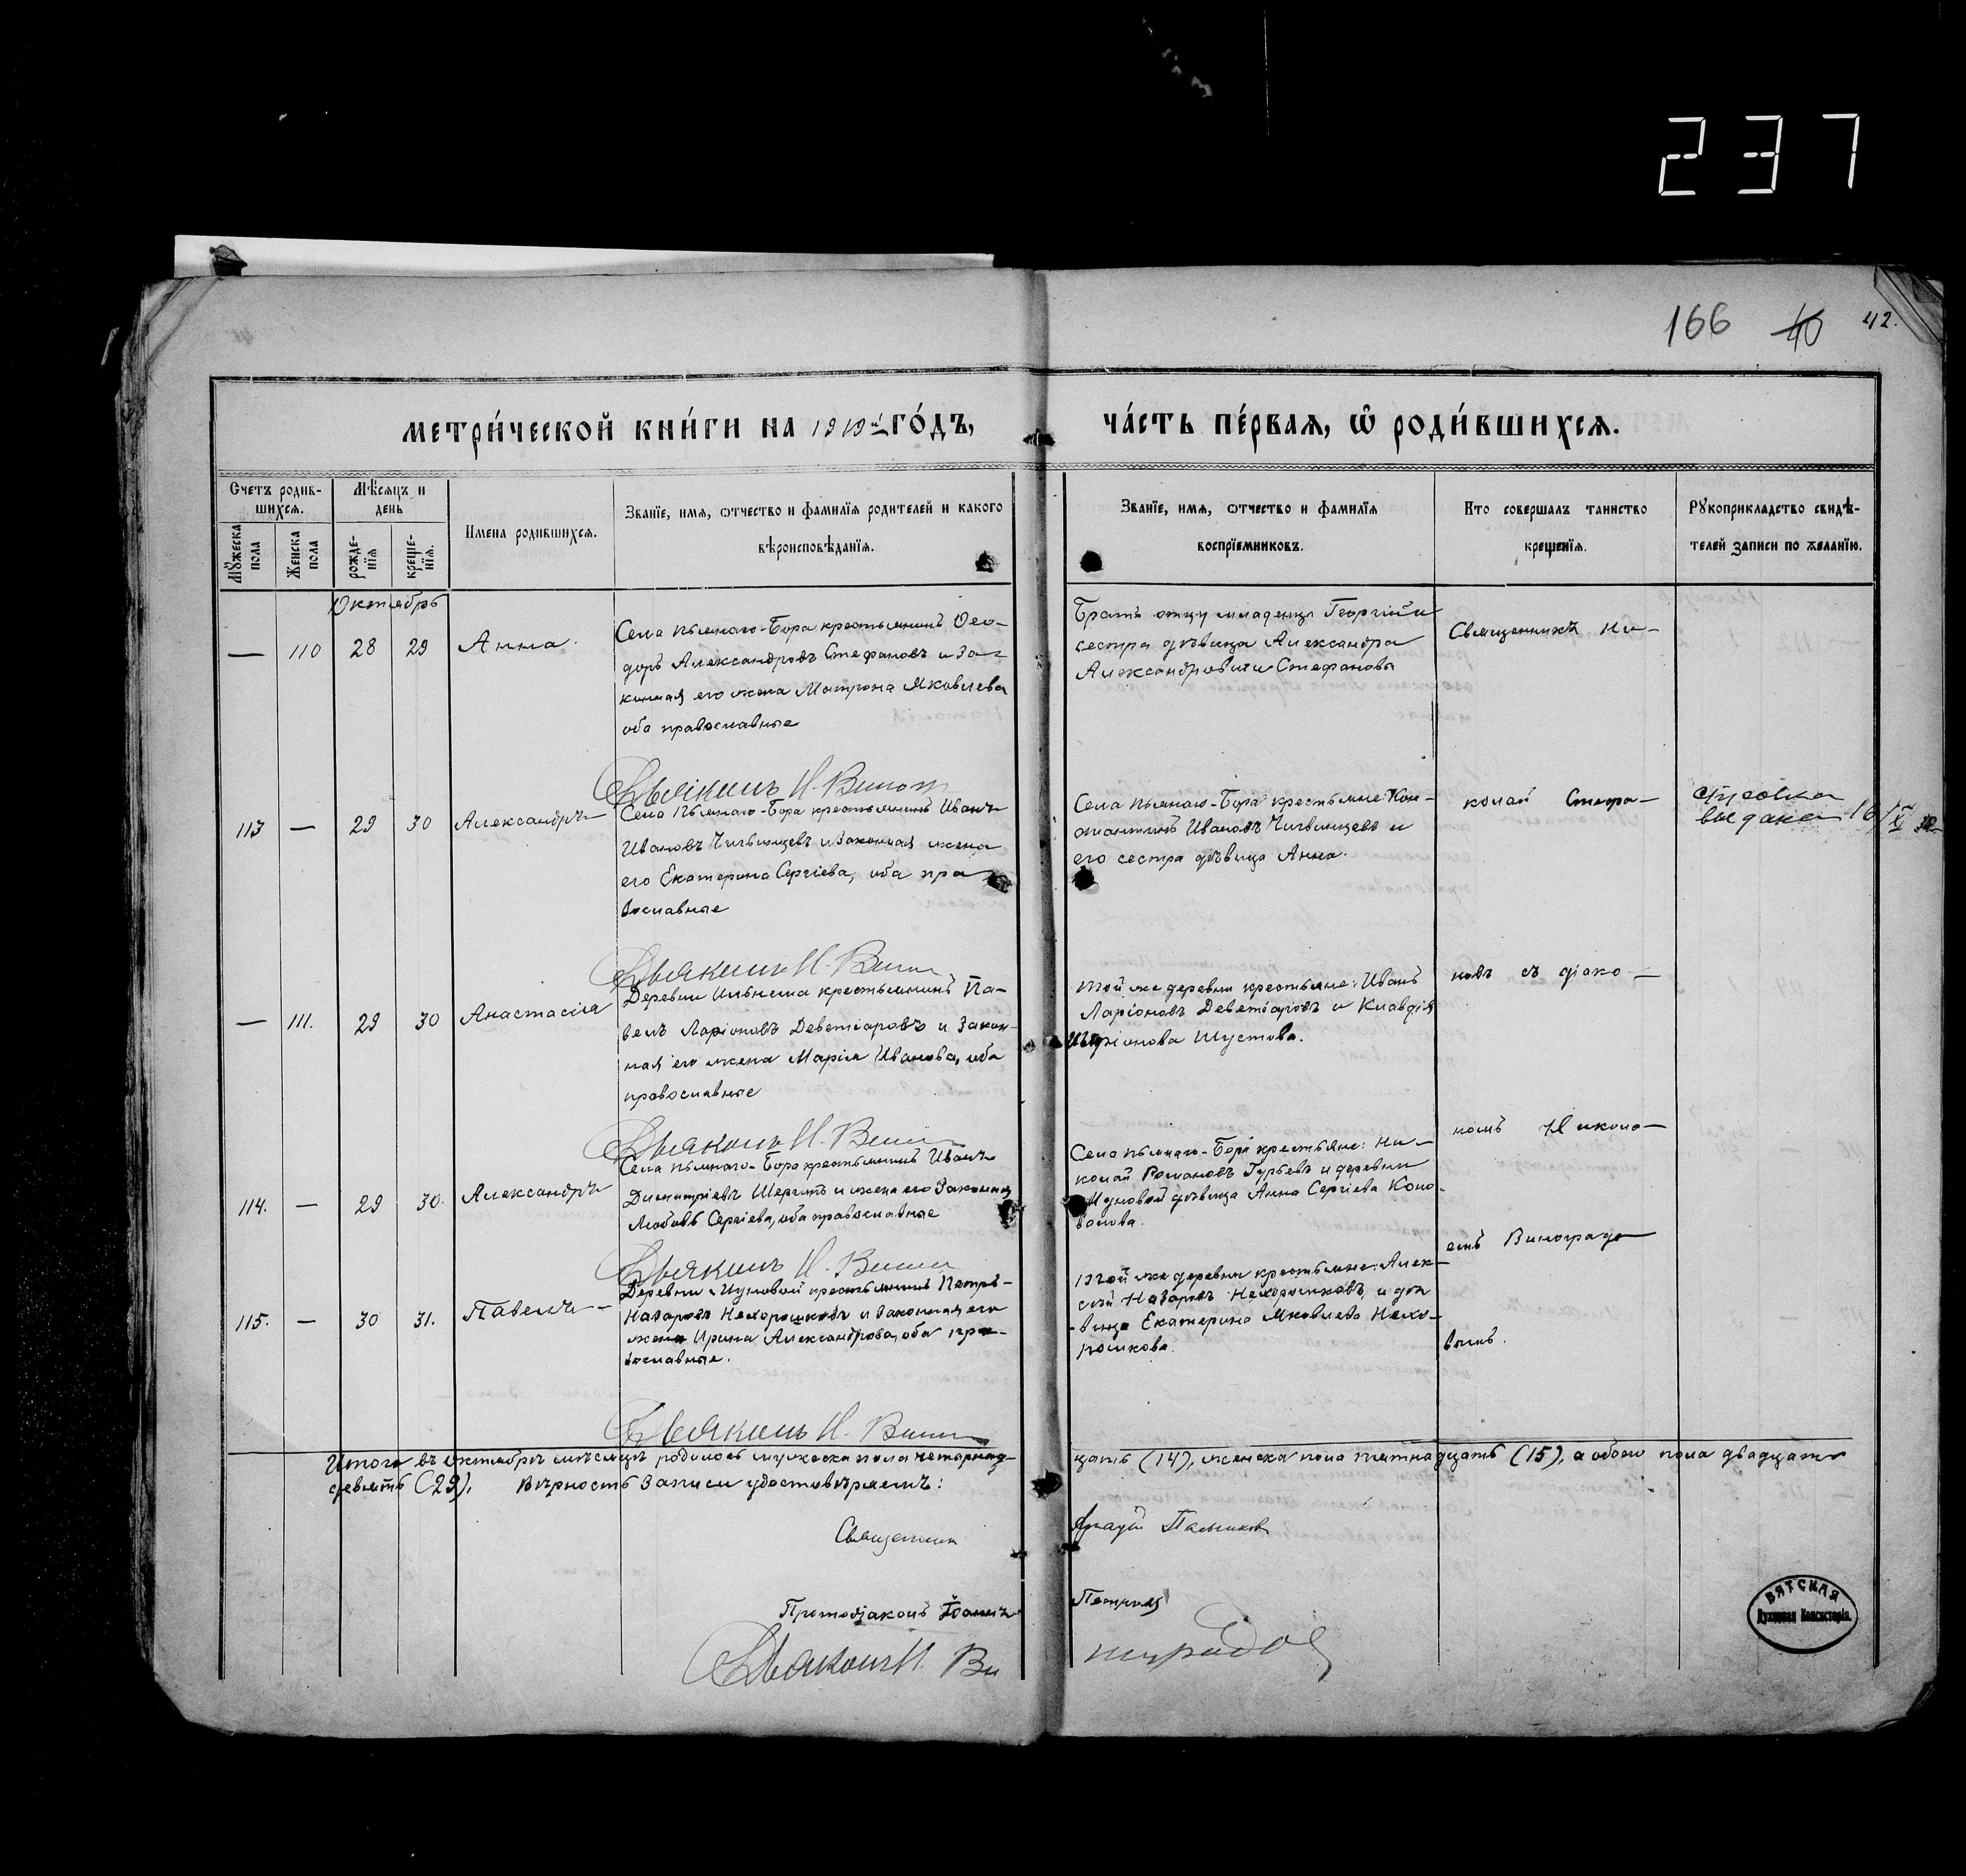 237
166 40 42.
МЕТРИ́ЧЕСКОЙ КНИ́ГИ НА 1919й ГО́ДЪ,
ЧА́СТЬ ПЕ́РВАЯ, Ѡ РОДИ́ВШИХСЯ.
Счетъ родив-
шихся.
Мѣсяцъ и
день
Мꙋжеска
пола
Женска
пола
рожде-
нїя
креще-
нїя.
Имена родившихся.
Званїе, имя, ѡтчество и фамилїя родителей и какого
вѣроисповѣданїя.
Званїе, имя, ѡтчество и фамилїя
воспрїемниковъ.
Кто совершалъ таинство
крещенїя.
Рꙋкоприкладство свидѣ-
телей записи по желанїю.
Октябрь
— 110 28 29 Анна.
Села Пьянаго-Бора крестьянинъ Ѳео-
доръ Александровъ Стефановъ и за-
конная его жена Матрона Яковлева
оба православные
Братъ отцу младенца Георгій и
сестра дѣвица Александра
Александровичи Стефановы
Священникъ Ни-
Дьяконъ Н. Виног
113 — 29 30 Александръ
Села Пьянаго-Бора крестьянинъ Иванъ
Ивановъ Чигвинцевъ и законная жена
его Екатерина Сергіева, оба пра
вославные
Села Пьянаго-Бора крестьяне: Кон-
стантинъ Ивановъ Чигвинцевъ и
его сестра дѣвица Анна.
колай Стефа-
Справка
выдана 16/XI
Дьяконъ Н. Вин
— 111. 29 30 Анастасія
Деревни Ильнеша крестьянинъ Па-
велъ Ларіоновъ Деветіаровъ и закон-
ная его жена Марія Иванова, оба
православные
Той же деревни крестьяне: Иванъ
Ларіоновъ Деветіаровъ и Клавдія
Иларіонова Шустова.
новъ съ діако-
Дьяконъ Н. Вин
114. — 29 30. Александръ
Села Пьянаго-Бора крестьянинъ Иванъ
Димитріевъ и жена его законная
Любовь Сергіева, оба православные
Села Пьянаго-Бора крестьяне: Ни-
колай Романовъ Гурьевъ и деревни
Муновой дѣвица Анна Сергіева Коно-
валова.
номъ Никола-
Дьяконъ Н. Вин
115. — 30 31. Павелъ
Деревни Муновой крестьянинъ Петръ
Назаровъ Нехорошковъ и законная его
жена Ирина Александрова, оба пра-
вославные.
Той же деревни крестьяне: Алек-
сѣй Назаровъ Нехорошковъ, и дѣ-
вица Екатерина Яковлева Нехо-
рошкова.
емъ Виноградо
вымъ.
Дьяконъ Н. Вин
Итого въ октябрѣ мѣсяцѣ родилось мужеска пола четырнад-
цать (14), женска пола пятнадцать (15), а обоего пола двадцать
девять (29). Вѣрность записи удостовѣряемъ:
Священникъ
Аркадій Пальчиков
Протодіаконъ Іоаннъ
Дьяконъ Н. Ви
ноградов
ВЯТСКАЯ
Духовная Консисторія.